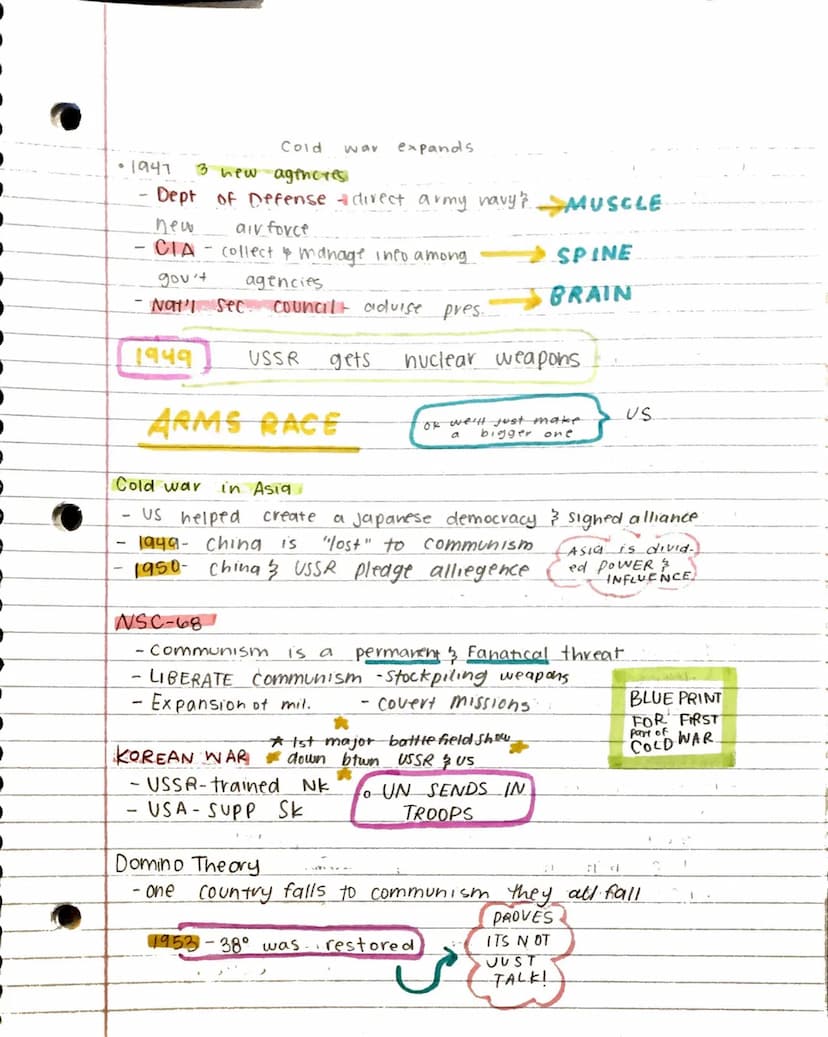 Cold war expands
• 1947 3 new agencies
- Dept of Defense → direct army navy & → MUSCLE
new air force
- CIA - collect & manage info among → SPINE
gov't agencies
- Nat'l sec. council - advise pres. → BRAIN
1949 USSR gets nuclear weapons
ARMS RACE
ok we'll just make
a bigger one
US
Cold war in Asia
- US helped create a Japanese democracy & signed alliance
- 1949 - China is "lost" to communism
- 1950 - China & USSR pledge alliegence
Asia is divid-
ed POWER &
INFLUENCE
NSC-68
- Communism is a permanent & Fanatical threat
- LIBERATE communism - stockpiling weapons
- Expansion of mil. - covert missions
BLUE PRINT
FOR FIRST
part of
COLD WAR
KOREAN WAR
★ 1st major battlefield show
down btwn USSR & US
- USSR-trained NK
- USA - supp SK
• UN SENDS IN
TROOPS
Domino Theory
- one country falls to communism they all fall
1953 - 38° was restored
PROVES
ITS NOT
JUST
TALK!